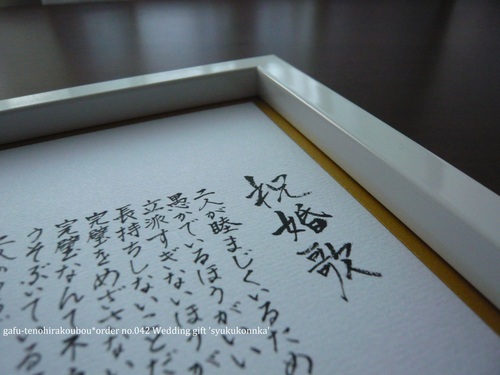 祝婚歌
二人が睦まじくいるため
愚かでいるほうがいい
立派すぎないほうが
長持ちしないことだ
完璧をめざさない
完璧なんて不
うそぶいている
二人のうち
gafu-tenohirakoubou*order no.042 Wedding gift 'syukukonnka'